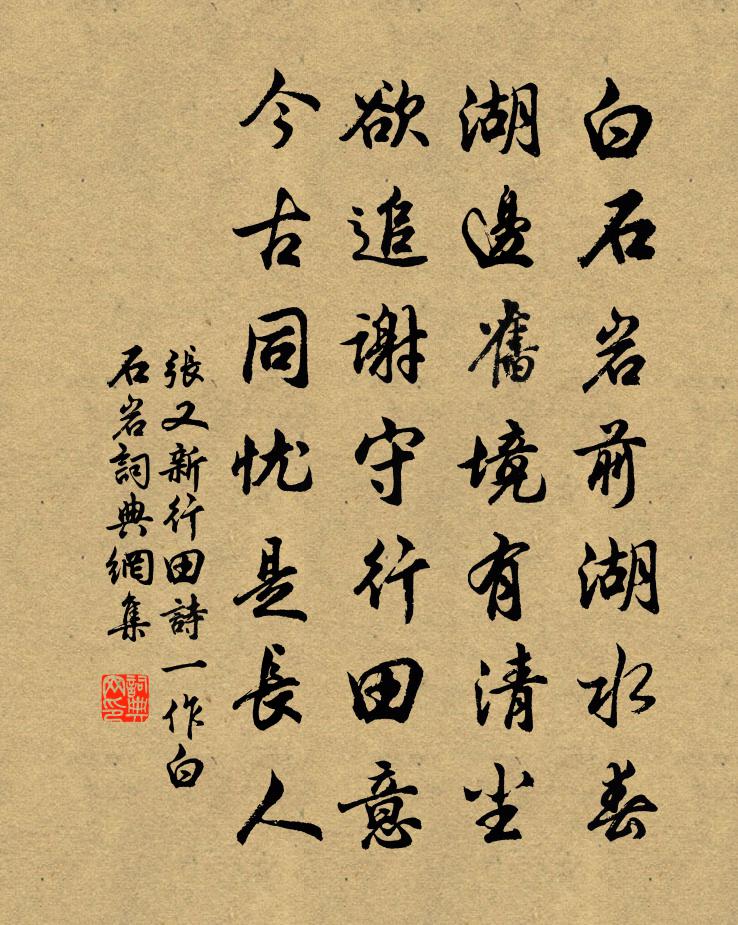 白石岩前湖水春
湖邊舊境有清尘
欲追謝守行田意
今古同忧是長人
張又新行田詩一作白
石岩詞典網集
詞典
网印